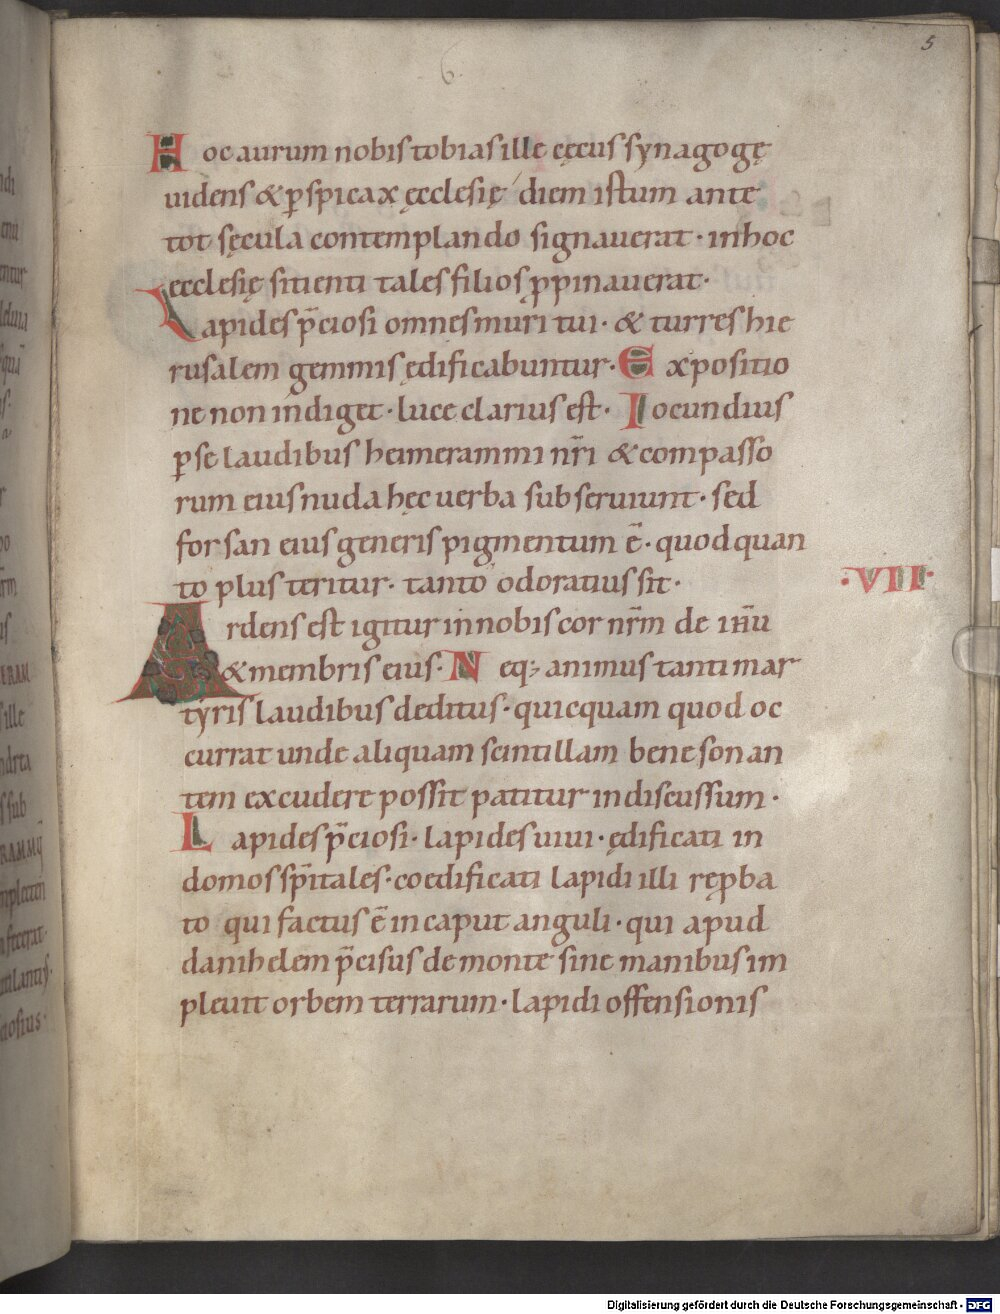 5
6
Hoc aurum nobis tobias ille cęcus synagogę
uidens & p̲spicax ęcclesię diem istum ante
tot sęcula contemplando signauerat · in hoc
ecclesię sitienti tales filios p̲pinauerat ·
Lapides p̄ciosi omnes muri tui · & turres hie
rusalem gemmis ędificabuntur · Expositio
ne non indiget · luce clarius est · Iocundius
p̲ se laudibus heimerammi nr̄i & compasso
rum eius nuda hęc uerba subseruiunt · sed
forsan eius generis pigmentum ē · quod quan
to plus teritur · tanto odoratius sit ·
·VII·
Ardens est igitur in nobis cor nr̄m de ih̄u
& membris eius · Neq; animus tanti mar
tyris laudibus deditus · quicquam quod oc
currat unde aliquam scintillam bene sonan
tem excudere possit patitur indiscussum ·
Lapides p̄ciosi · lapides uiui · ędificati in
domos sp̄itales · coedificati lapidi illi rep̲ba
to qui factus ē in caput anguli · qui apud
danihelem p̄cisus de monte sine manibus im
pleuit orbem terrarum · lapidi offensionis
Digitalisierung gefördert durch die Deutsche Forschungsgemeinschaft - DFG